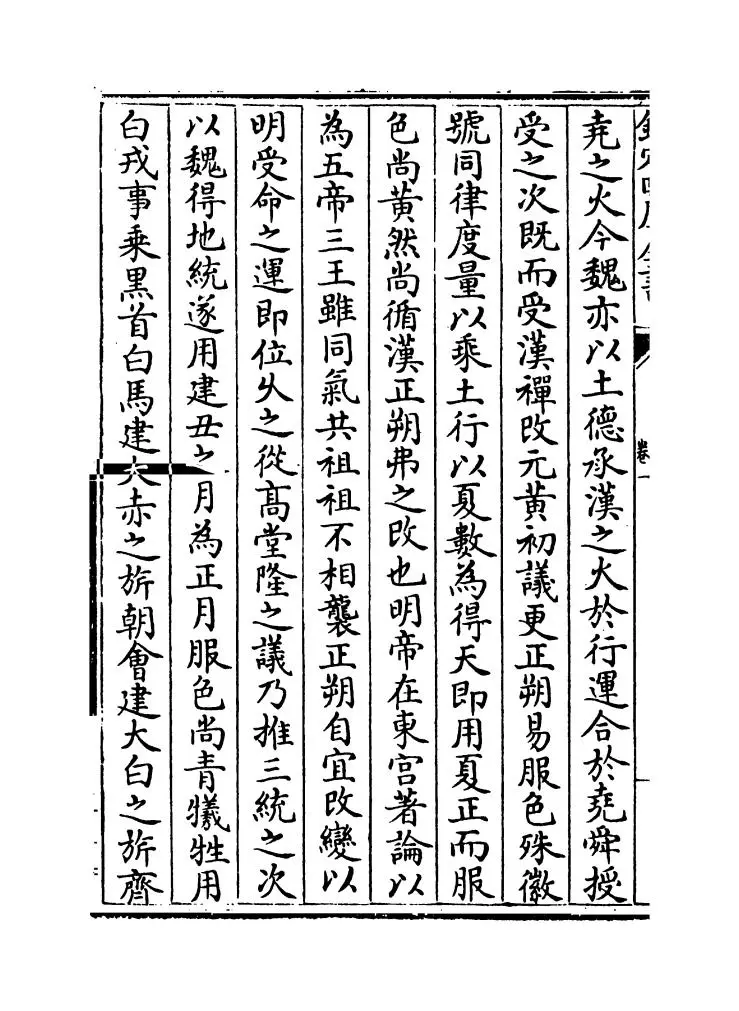 欽定四庫全書
卷一
堯之火今魏亦以土德承漢之火於行運合於堯舜授
受之次既而受漢禪改元黃初議更正朔易服色殊徽
號同律度量以乘土行以夏數為得天即用夏正而服
色尚黃然尚循漢正朔弗之改也明帝在東宫著論以
為五帝三王雖同氣共祖祖不相襲正朔自宜改變以
明受命之運即位乆之從髙堂隆之議乃推三統之次
以魏得地統遂用建丑之月為正月服色尚青犧牲用
白戎事乘黒首白馬建大赤之旂朝㑹建大白之旂齊